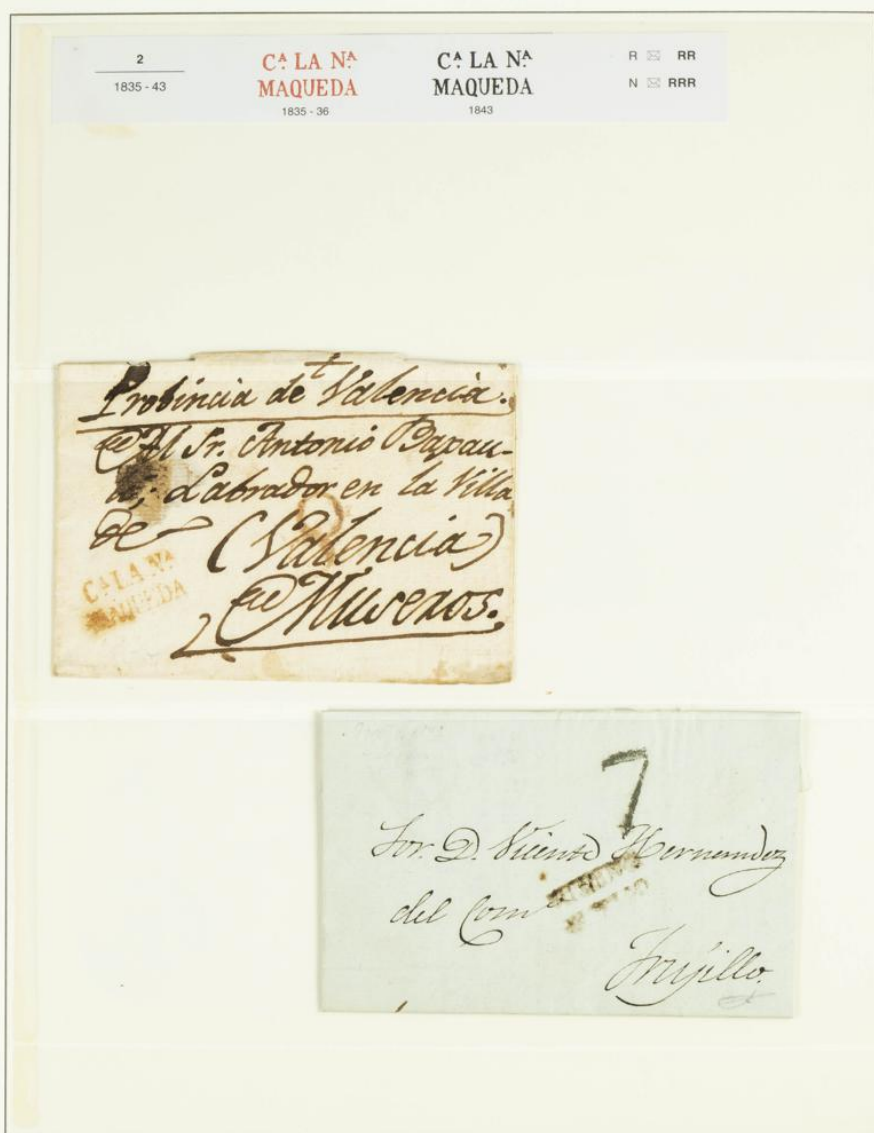 2
1835 - 43
Cᴬ LA Nᴬ
MAQUEDA
1835 - 36
Cᴬ LA Nᴬ
MAQUEDA
1843
R ✉ RR
N ✉ RRR
Probincia de Valencia.
Al Sr. Antonio
Labrador en la Villa
de
(Valencia)
Museros.
Cᴬ LA Nᴬ
MAQUEDA
7
Sor. D. Vicente Hernandez
del Com
Trujillo.